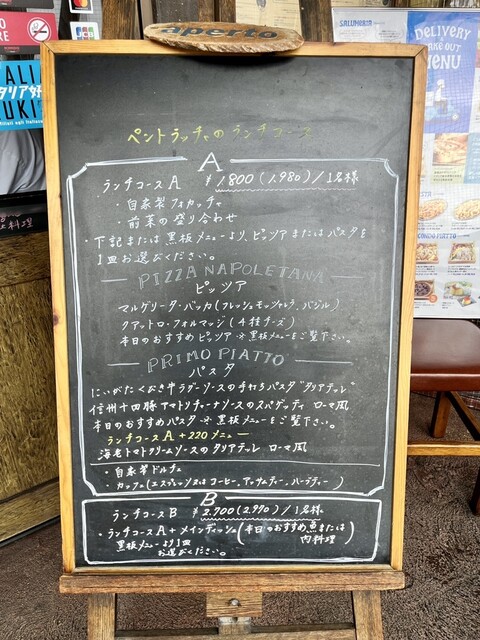 aperto
ペントラッチャのランチコース
A
ランチコースA ¥1800(1,980)/1名様
・自家製フォカッチャ
・前菜の盛り合わせ
・下記または黒板メニューより、ピッツアまたはパスタを
1皿お選びください。
PIZZA NAPOLETANA
ピッツア
マルゲリータ・バッカ(フレッシュモッツァレラ、バジル)
クアットロ・フォルマッジ(4種チーズ)
本日のおすすめピッツア ※黒板メニューをご覧下さい。
PRIMO PIATTO
パスタ
にいがたくびき牛ラグーソースの手打ちパスタ"タリアテッレ"
信州十四豚アマトリチャーナソースのスパゲッティ ローマ風
本日のおすすめパスタ ※黒板メニューをご覧下さい。
ランチコースA +220メニュー
海老トマトクリームソースのタリアテッレ ローマ風
・自家製ドルチェ
・カッフェ(エスプレッソ又はコーヒー、アッサムティー、ハーブティー)
B
ランチコースB ¥2,700(2,970)/1名様
・ランチコースA+メインディッシュ(本日のおすすめ魚または
肉料理)
黒板メニューより1皿
お選びください。
DELIVERY
TAKE OUT
MENU
JCB